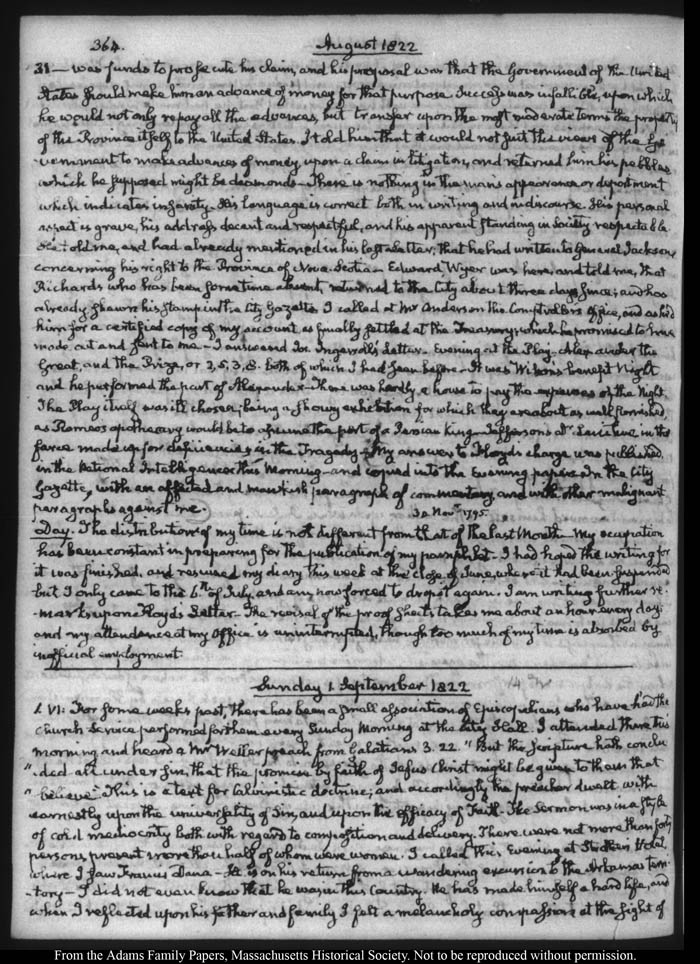 364.
August 1822
31— was funds to prosecute his claim, and his proposal was that the Government of the United
States should make him an advance of money for that purpose. Success was infallible, upon which
he would not only repay all the advances, but transfer upon the most moderate terms the property
of the Province itself to the United States. I told him that it would not suit the views of the Go-
vernment to make advances of money, upon a claim in litigation, and returned him his pebbles
which he supposed might be diamonds— There is nothing in the man's appearance or deportment
which indicates insanity. His language is correct both in writing and in discourse. His personal
aspect is grave, his address decent and respectful, and his apparent standing in Society respectable
told me, and had already mentioned in his last Letter, that he had written to General Jackson
concerning his right to the Province of Nova-Scotia— Edward Wyer was here, and told me, that
Richards who has been sometime absent, returned to the City about three days since; and has
already shewn his stamp in the City Gazette. I called at Mr Anderson the Comptroller's Office, and asked
him for a certified copy of my account as finally settled at the Treasury; which he promised to have
made out and sent to me— I answered Jos. Ingersoll's Letter. Evening at the Play. Alexander the
Great, and the Prize, or 2, 5, 3, 8. both of which I had seen before— It was Wilson's benefit Night
and he performed the part of Alexander— There was hardly a house to pay the expenses of the Night.
The Play itself was ill chosen; being a showy exhibition for which they are about as well furnished,
as Romeo's apothecary would be to assume the part of a Persian King— Jefferson's Dr Lenitive in the
farce made up for deficiencies in the Tragedy— My answer to Floyd's charge was published,
in the National Intelligencer this Morning— and copied into the Evening papers. In the City
Gazette, with an affected and mawkish paragraph of commentary, and with other malignant
paragraphs against me.
30 Novr 1795.
Day. The distribution of my time is not different from that of the last Month— My occupation
has been constant in preparing for the publication of my pamphlet— I had hoped the writing for
it was finished, and resumed my diary this week at the close of June, where it had been suspended
but I only came to the 6th of July, and am now forced to drop it again. I am writing further re-
-marks upon Floyd's Letter— The revisal of the proof sheets takes me about an hour every day;
and my attendance at my Office is uninterrupted, though too much of my time is absorbed by
inofficial employment.
Sunday 1. September 1822
1. VI: For some weeks past, there has been a small association of Episcopalians who have had the
Church Service performed for them every Sunday Morning at the City Hall. I attended there this
morning and heard a Mr Weller preach from Galatians 3. 22. "But the Scripture hath conclu
"-ded all under sin, that the promise by faith of Jesus Christ might be given to them that
"believe" This is a text for Calvinistic doctrine; and accordingly the preacher dwelt with
earnestly upon the universality of Sin, and upon the efficacy of Faith— The Sermon was in a style
of cold mediocrity both with regard to composition and delivery. There were not more than forty
persons present more than half of whom were women. I called this Evening at Strother's Hotel,
where I saw Francis Dana— He is on his return from a wandering excursion to the Arkansas terri-
-tory— I did not even know that he was in this Country. He has made himself a hard life, and
when I reflected upon his father and family I felt a melancholy compassion at the sight of
From the Adams Family Papers, Massachusetts Historical Society. Not to be reproduced without permission.